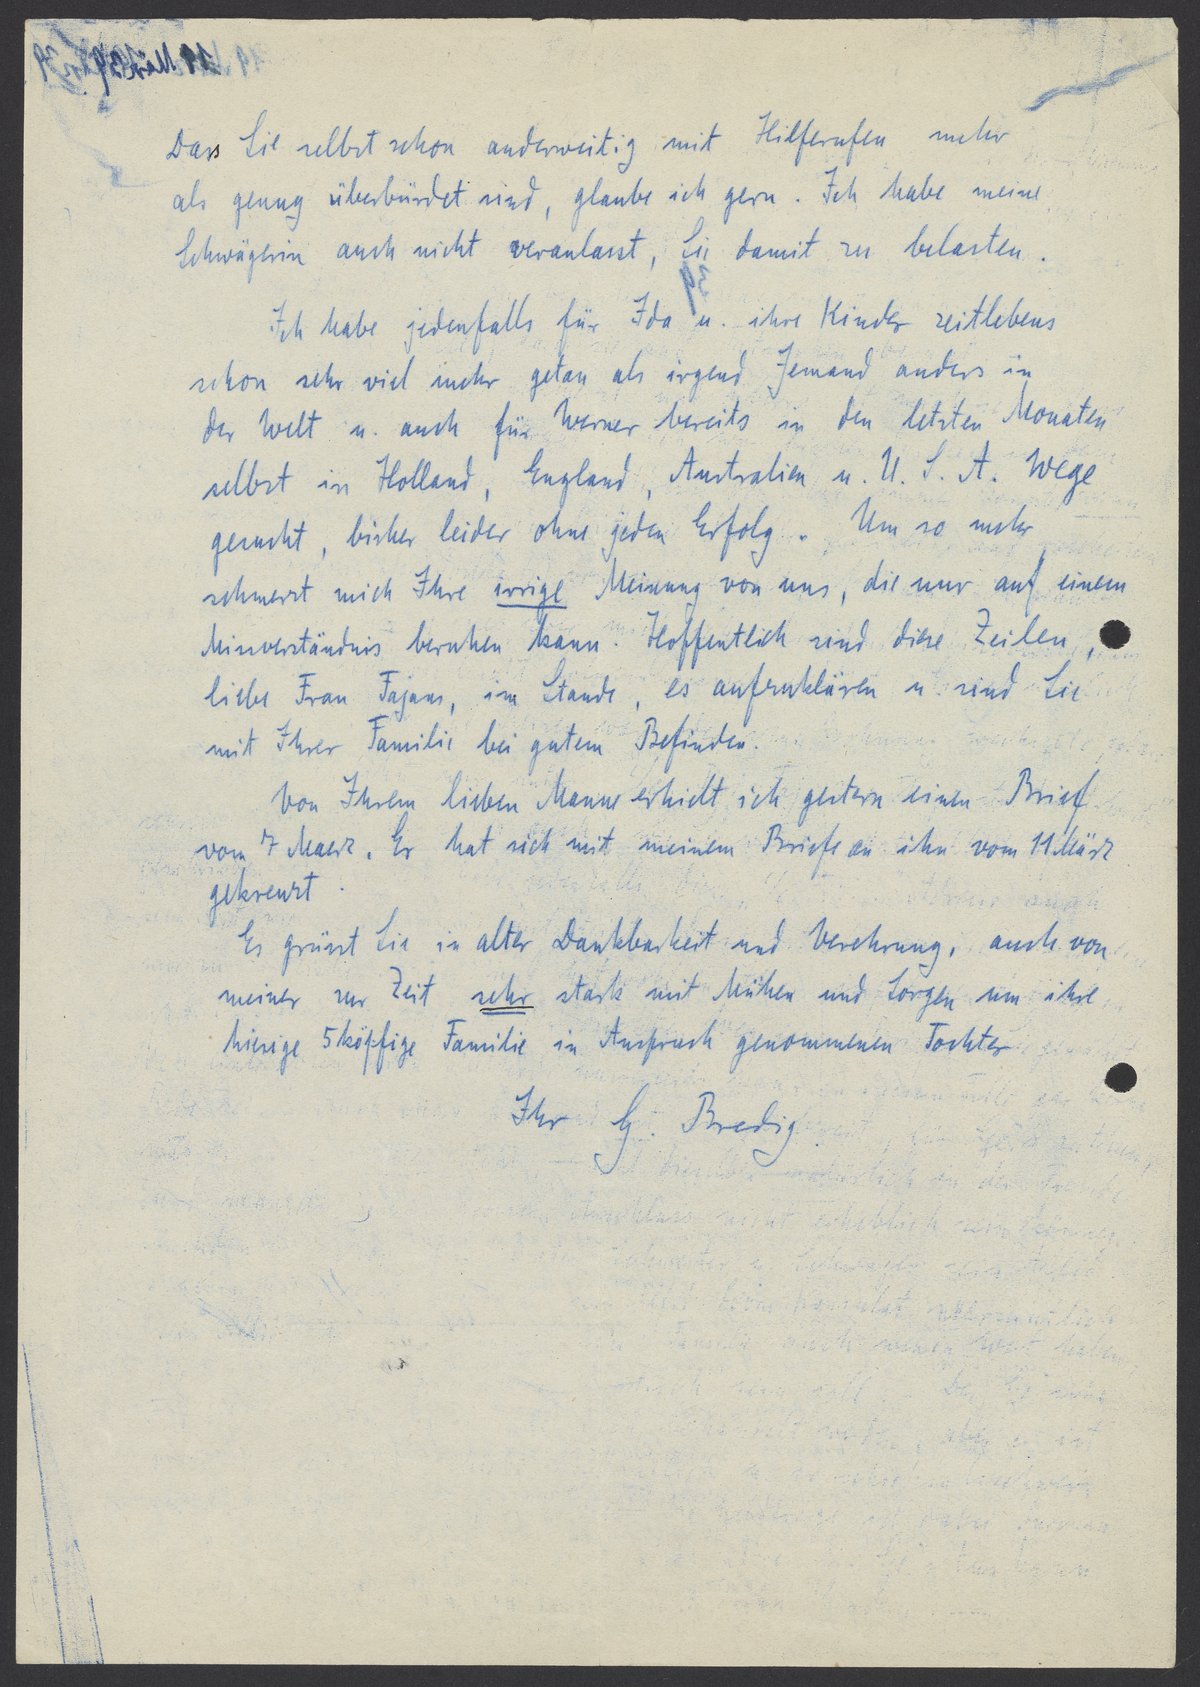 Dass Sie selbst schon anderweitig mit Hilferufen mehr
als genug überbürdet sind, glaube ich gern. Ich habe meine
Schwägerin auch nicht veranlasst, Sie damit zu belasten.
Ich habe jedenfalls für Ida u. ihre Kinder zeitlebens
schon sehr viel mehr getan als irgend Jemand anders in
der Welt u. auch für Werner bereits in den letzten Monaten
selbst in Holland, England, Australien u. U. S. A. Wege
gesucht, bisher leider ohne jeden Erfolg. Um so mehr
schmerzt mich Ihre irrige Meinung von uns, die nur auf einem
Missverständnis beruhen kann. Hoffentlich sind diese Zeilen,
liebe Frau Fajans, im Stande, es aufzuklären u. sind Sie
mit Ihrer Familie bei gutem Befinden.
Von Ihrem lieben Manne erhielt ich gestern einen Brief
vom 7 Maerz. Er hat sich mit meinem Briefe an ihn vom 11 März
gekreuzt.
Es grüsst Sie in alter Dankbarkeit und Verehrung, auch von
meiner zur Zeit sehr stark mit Mühen und Sorgen um ihre
hiesige 5köpfige Familie in Anspruch genommenen Tochter
Ihr G. Bredig.